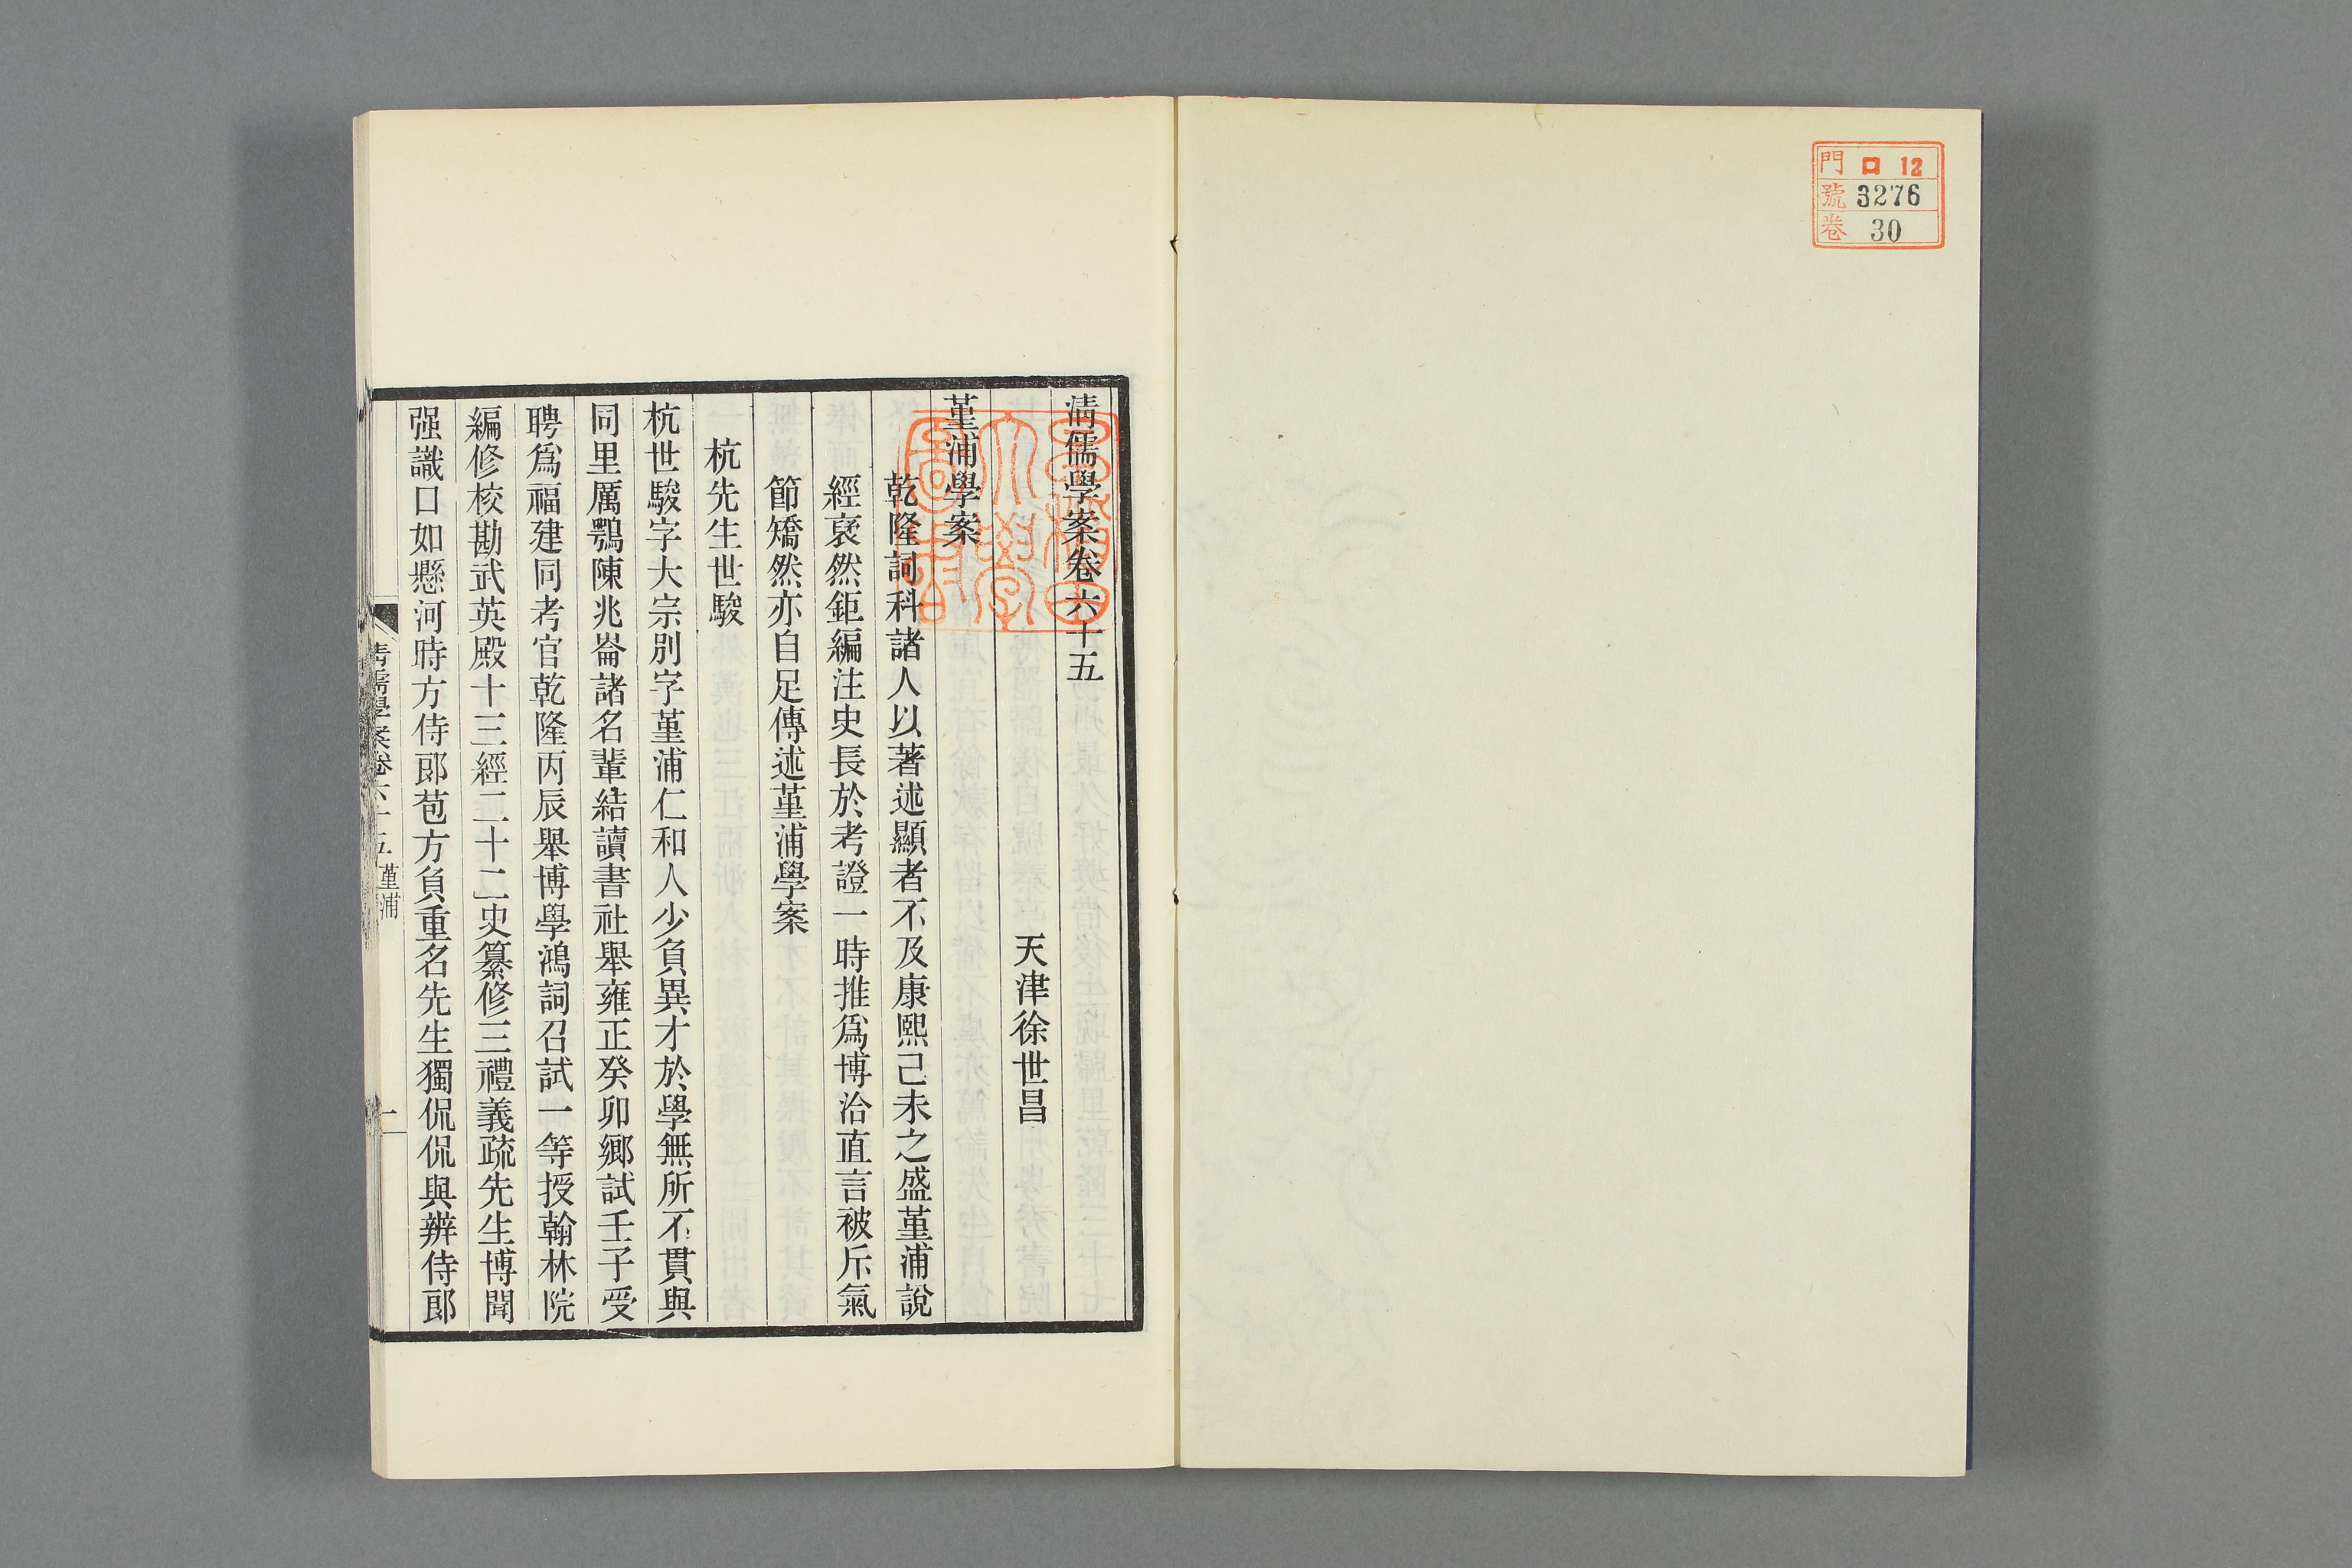 門 ロ 12
號 3276
卷 30
清儒學案卷六十五
天津徐世昌
堇浦學案
乾隆詞科諸人以著述顯者不及康熙己未之盛堇浦說
經裒然鉅編注史長於考證一時推爲博洽直言被斥氣
節矯然亦自足傳述堇浦學案
杭先生世駿
杭世駿字大宗別字堇浦仁和人少負異才於學無所不貫與
同里厲鶚陳兆崙諸名輩結讀書社舉雍正癸卯鄉試壬子受
聘爲福建同考官乾隆丙辰舉博學鴻詞召試一等授翰林院
編修校勘武英殿十三經二十二史纂修三禮義疏先生博聞
强識口如懸河時方侍郎苞方負重名先生獨侃侃與辨侍郎
清儒學案卷六十五 堇浦 一